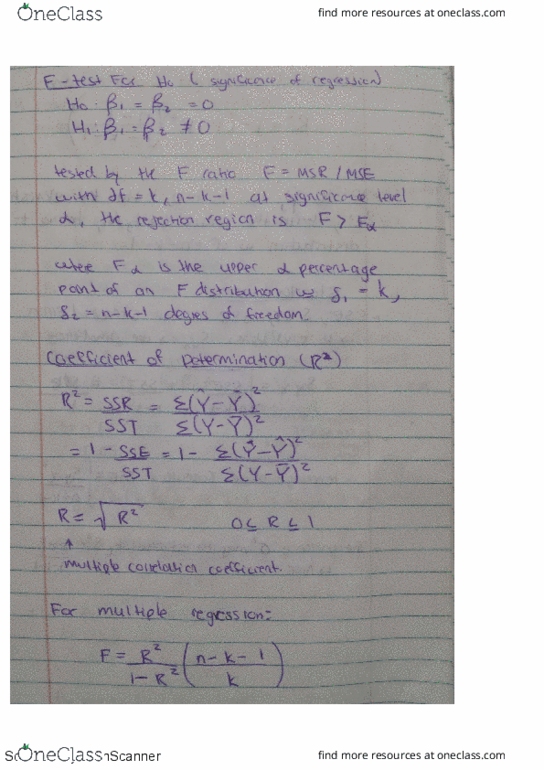 OneClass
find more resources at oneclass.com
F-test For H₀ (significance of regression)
H₀: β₁ = β₂ = 0
H₁: β₁ = β₂ ≠ 0
tested by the F ratio F = MSR / MSE
with df = k, n-k-1 at significance level
α, the rejection region is F > Fα
where Fα is the upper α percentage
point of an F distribution w δ₁ = k,
δ₂ = n-k-1 degrees of freedom.
Coefficient of Determination (R²)
R² = SSR/SST = Σ(Ŷ-Ȳ)²/Σ(Y-Ȳ)²
= 1 - SSE/SST = 1 - Σ(Y-Ŷ)²/Σ(Y-Ȳ)²
R = √R² 0 ≤ R ≤ 1
↑
multiple correlation coefficient.
For multiple regression:
F = R²/1-R² (n-k-1/k)
OneClass
Scanner
find more resources at oneclass.com